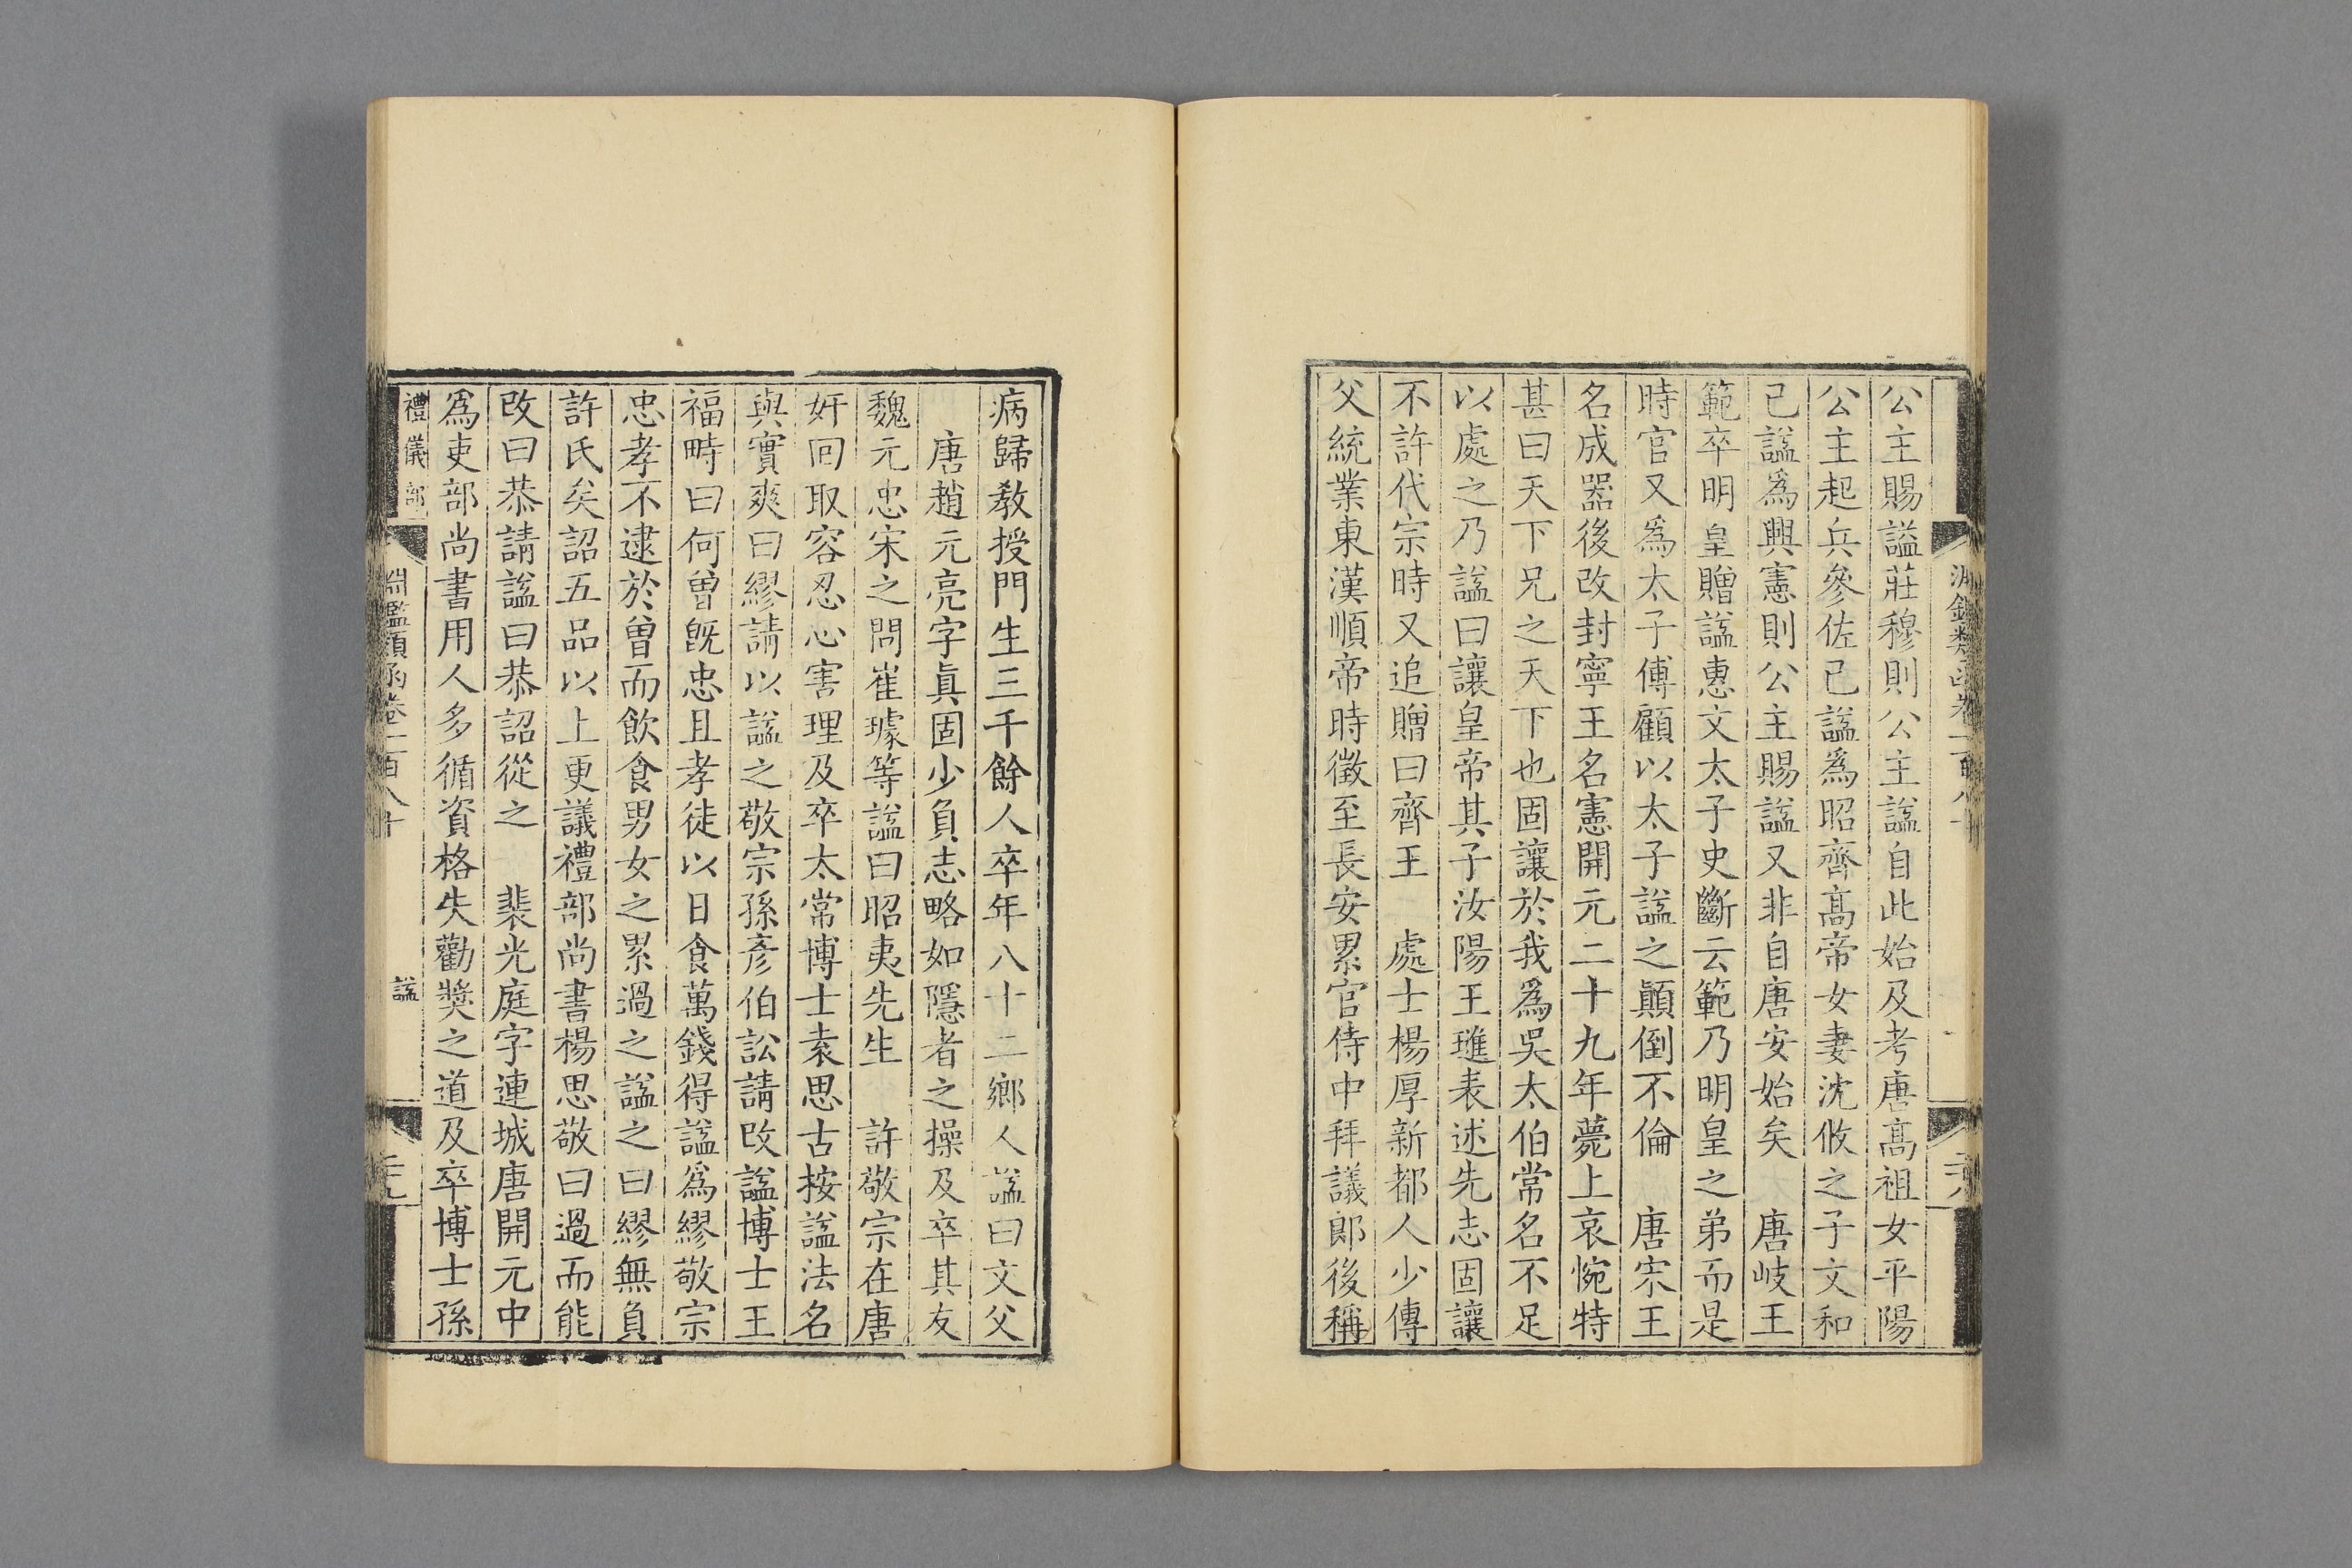 公主賜謚莊穆則公主謚自此始及考唐髙祖女平陽
公主起兵參佐已謚爲昭齊髙帝女妻沈攸之子文和
已謚爲興憲則公主賜謚又非自唐安始矣　唐岐王
範卒明皇贈謚惠文太子史斷云範乃明皇之弟而是
時官又爲太子傅顧以太子謚之顚倒不倫　唐宋王
名成器後改封寧王名憲開元二十九年薨上哀惋特
甚曰天下兄之天下也固讓於我爲吳太伯常名不足
以處之乃謚曰讓皇帝其子汝陽王璡表述先志固讓
不許代宗時又追贈曰齊王　處士楊厚新都人少傳
父統業東漢順帝時徵至長安累官侍中拜議郎後稱
病歸教授門生三千餘人卒年八十二鄉人謚曰文父
唐趙元亮字眞固少負志略如隱者之操及卒其友
魏元忠宋之問崔璩等謚曰昭夷先生　許敬宗在唐
奸回取容忍心害理及卒太常博士袁思古按謚法名
與實爽曰繆請以謚之敬宗孫彥伯訟請改謚博士王
福畤曰何曾旣忠且孝徒以日食萬錢得謚爲繆敬宗
忠孝不逮於曾而飲食男女之累過之謚之曰繆無負
許氏矣詔五品以上更議禮部尚書楊思敬曰過而能
改曰恭請謚曰恭詔從之　裴光庭字連城唐開元中
爲吏部尚書用人多循資格失勸獎之道及卒博士孫
禮儀部
淵鑑類函卷一百八十
謚